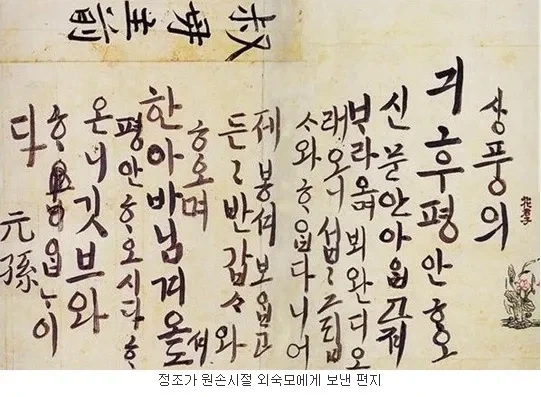 叔母主前
상풍의
긔후평안ᄒᆞ오
신문안아ᄋᆞᆸ고져
ᄇᆞ라오며 뵈완디오
래오니 섭〻그립
ᄉᆞ와ᄒᆞᄋᆞᆸ다니어
제봉셔보ᄋᆞᆸ고
든〻반갑ᄉᆞ와
ᄒᆞ오며
한아바님겨오셔도
평안ᄒᆞ오시다ᄒᆞ
온니깃브와
ᄒᆞᄋᆞᆸᄂᆞ이
다
元孫
정조가 원손시절 외숙모에게 보낸 편지